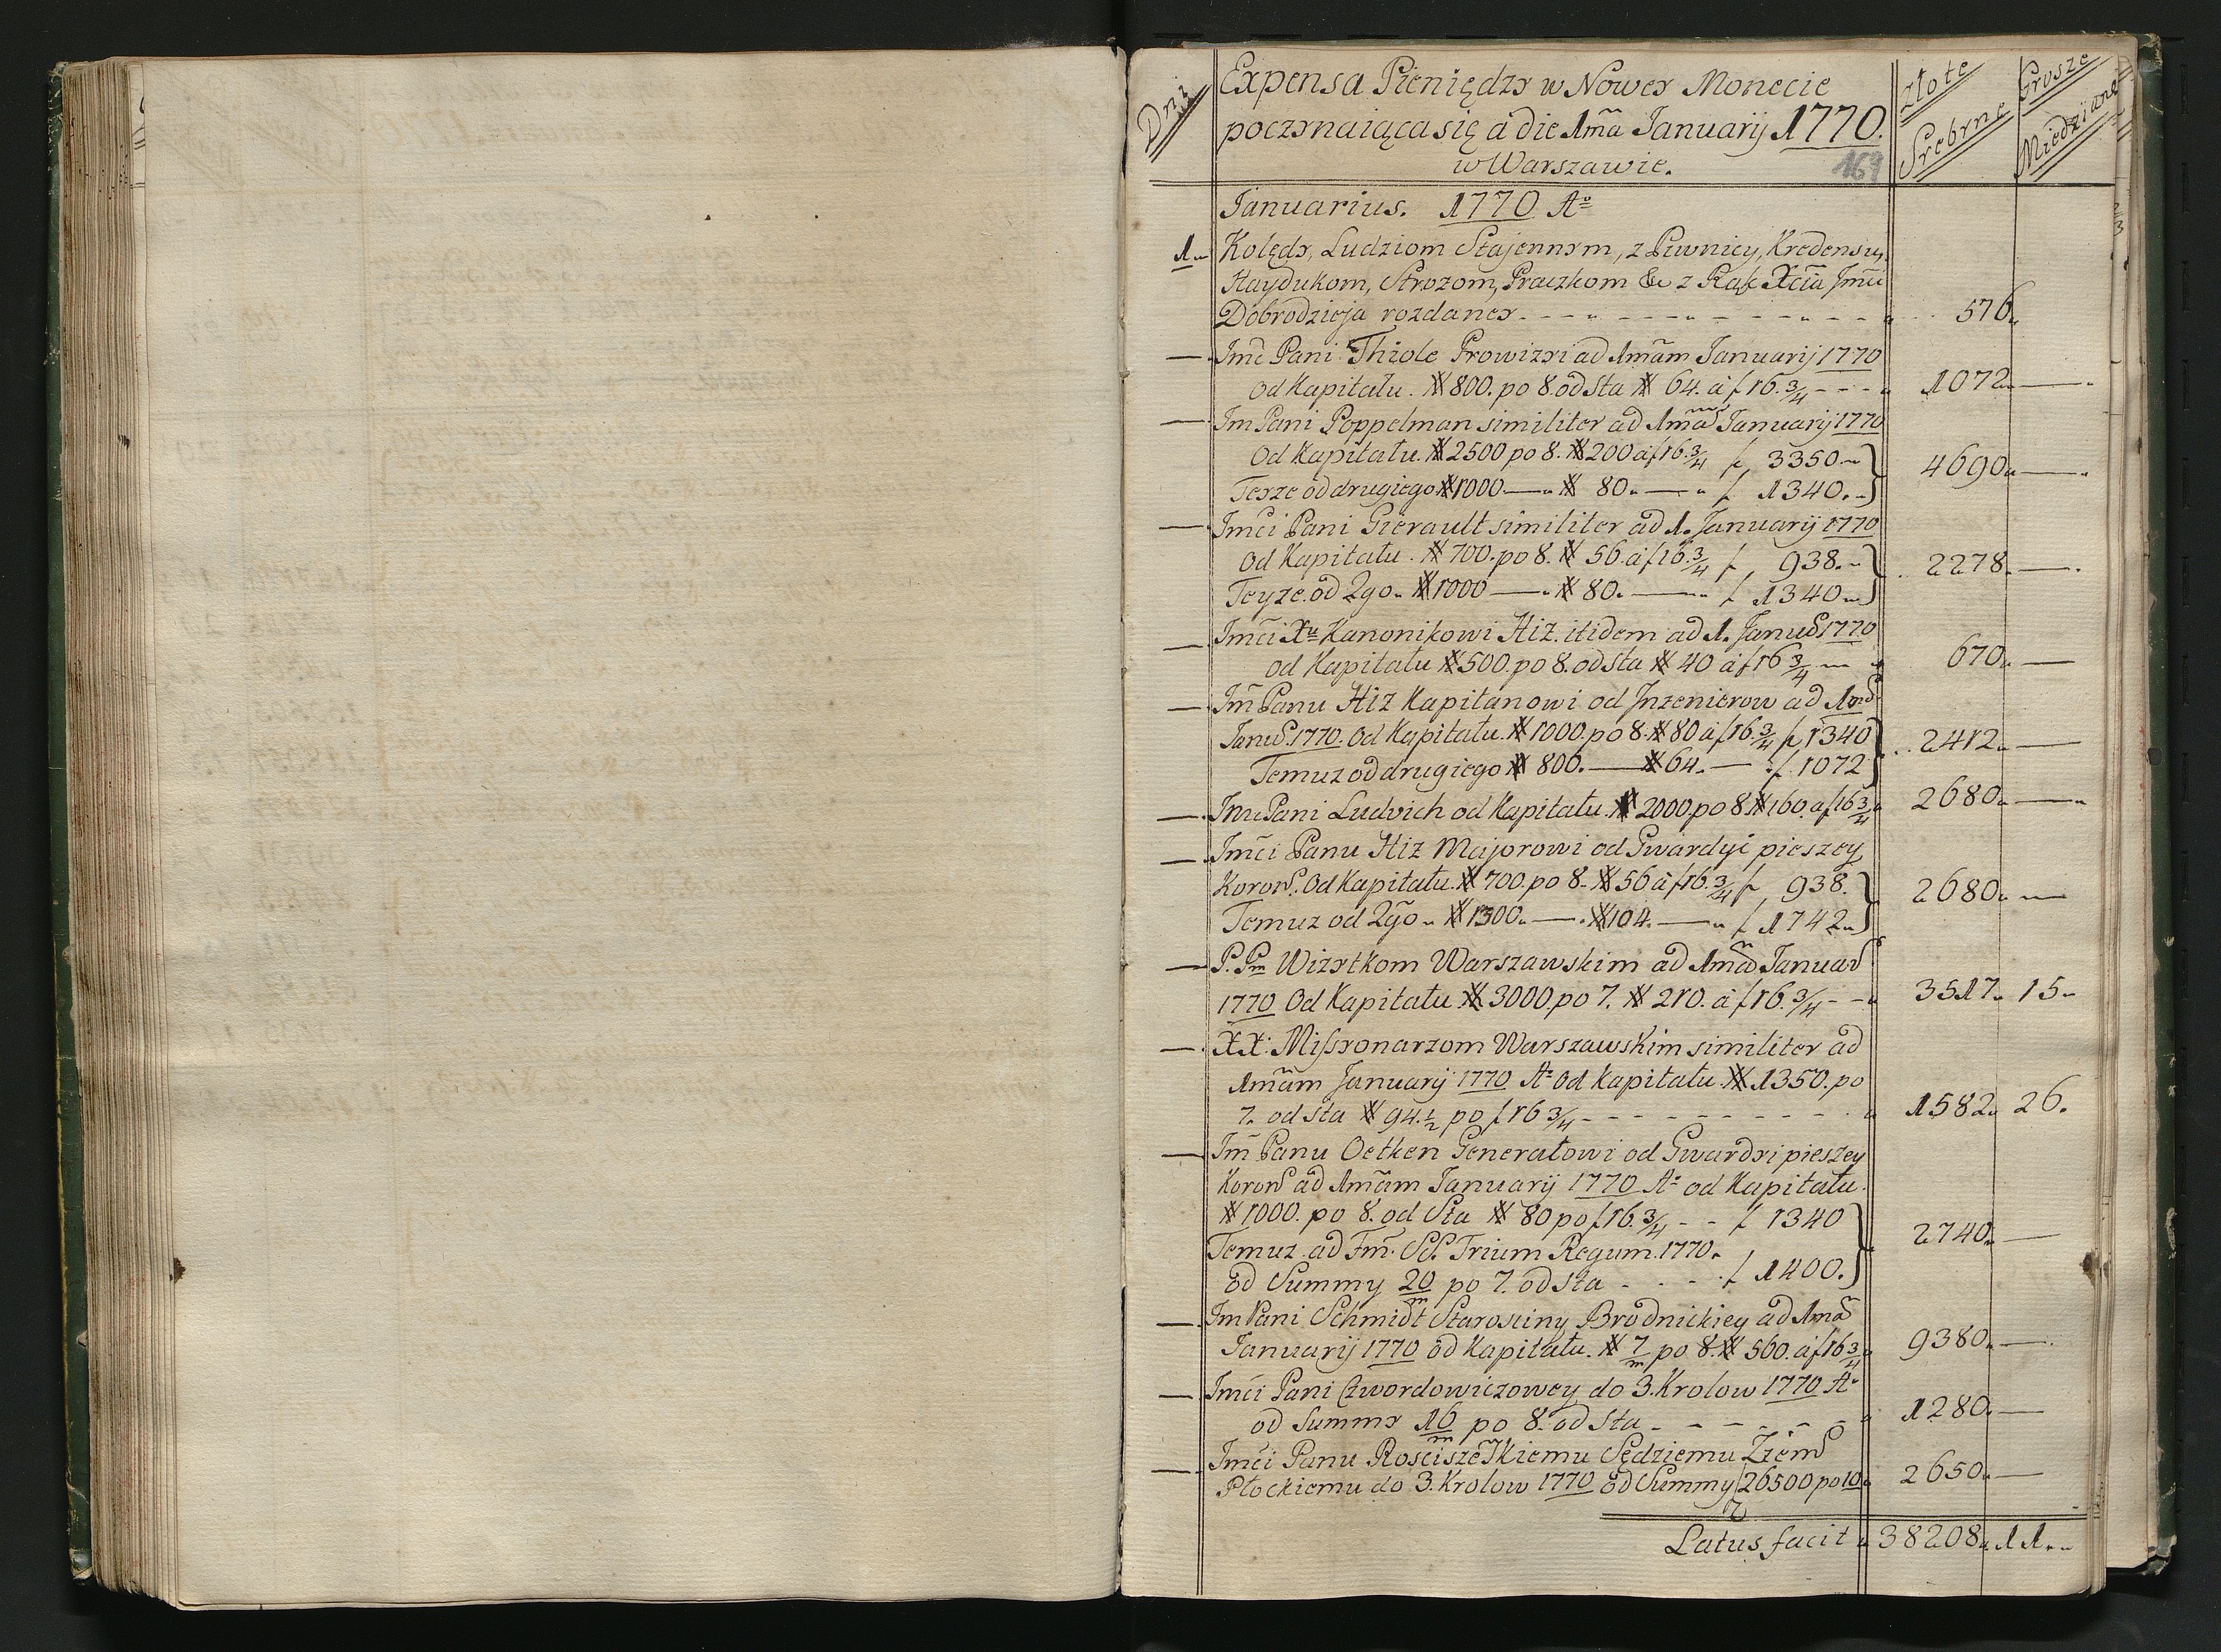 Dni
Expensa Pieniędzy w Nowey Monecie
poczynaiąca się a die 1ma Januarij 1770.
w Warszawie.
169
Złote Srebrne
Grosze Miedziane
Januarius. 1770 Ao
1. Kolędy, Ludziom Stajennym, z Piwnicy, Kredensu,
Haydukom, Strozom, Praczkom &c z Rąk Xcia Jmci
Dobrodzieja rozdaney 576
Jmć Pani Thiole Prowizyi ad 1mam Januarij 1770
od Kapitału # 800. po 8. od sta # 64. a f 16. 3/4 1072
Jm Pani Poppelman similiter ad 1mam Januarij 1770
Od Kapitału # 2500 po 8. # 200 a f 16. 3/4 f 3350 } 4690
Teyze od drugiego # 1000 — # 80 — f 1340 }
Jmci Pani Gierault similiter ad 1. Januarij 1770
Od Kapitału # 700. po 8. # 56. a f 16. 3/4 f 938 } 2278
Teyze od 2go # 1000 — # 80. — f 1340 }
Jmci Xu Kanonikowi Hiz. itidem ad 1. Janu 1770
od Kapitału # 500. po 8. od sta # 40 a f 16 3/4 670
Jm Panu Hiz Kapitanowi od Jnzenierow ad 1ma
Janu. 1770. Od Kapitału # 1000. po 8. # 80 a f 16. 3/4 f 1340 } 2412
Temuz od drugiego # 800. — # 64. — f 1072 }
Jm Pani Ludvich od Kapitału # 2000. po 8 # 160. a f 16 3/4 2680
Jmci Panu Hiz Majorowi od Gwardyi pieszey
Koron. Od Kapitału # 700. po 8. # 56 a f 16. 3/4 f 938. } 2680
Temuz od 2go # 1300 — # 104. — f 1742 }
P. Pm Wizytkom Warszawskim ad 1mam Januar
1770 Od Kapitału # 3000. po 7. # 210. a f 16. 3/4 3517 15
XX. Missyonarzom Warszawskim similiter ad
1mam Januarij 1770 Ao od Kapitału # 1350. po
7. od sta # 94. 1/2 po f 16 3/4 1582 26.
Jm Panu Oetken Generałowi od Gwardyi pieszey
Koron ad 1mam Januarij 1770 Ao od Kapitału
# 1000. po 8. od Sta # 80 po f 16. 3/4 f 1340 } 2740
Temuz ad Fm. SS. Trium Regum. 1770.
od Summy 20/m po 7. od sta f 1400. }
Jm Pani Schmidt Starosciny Brodnickiey ad 1ma
Januarij 1770 od Kapitału # 7/m po 8. # 560. a f 16 3/4 9380
Jmci Pani Czwordowiczowey do 3. Krolow 1770 Ao
od Summy 16/m po 8. od sta 1280
Jmci Panu Rosciszewskiemu Sędziemu Ziem
Płockiemu do 3. Krolow 1770 od Summy f 26500 po 10 2650
Latus facit 38208 11